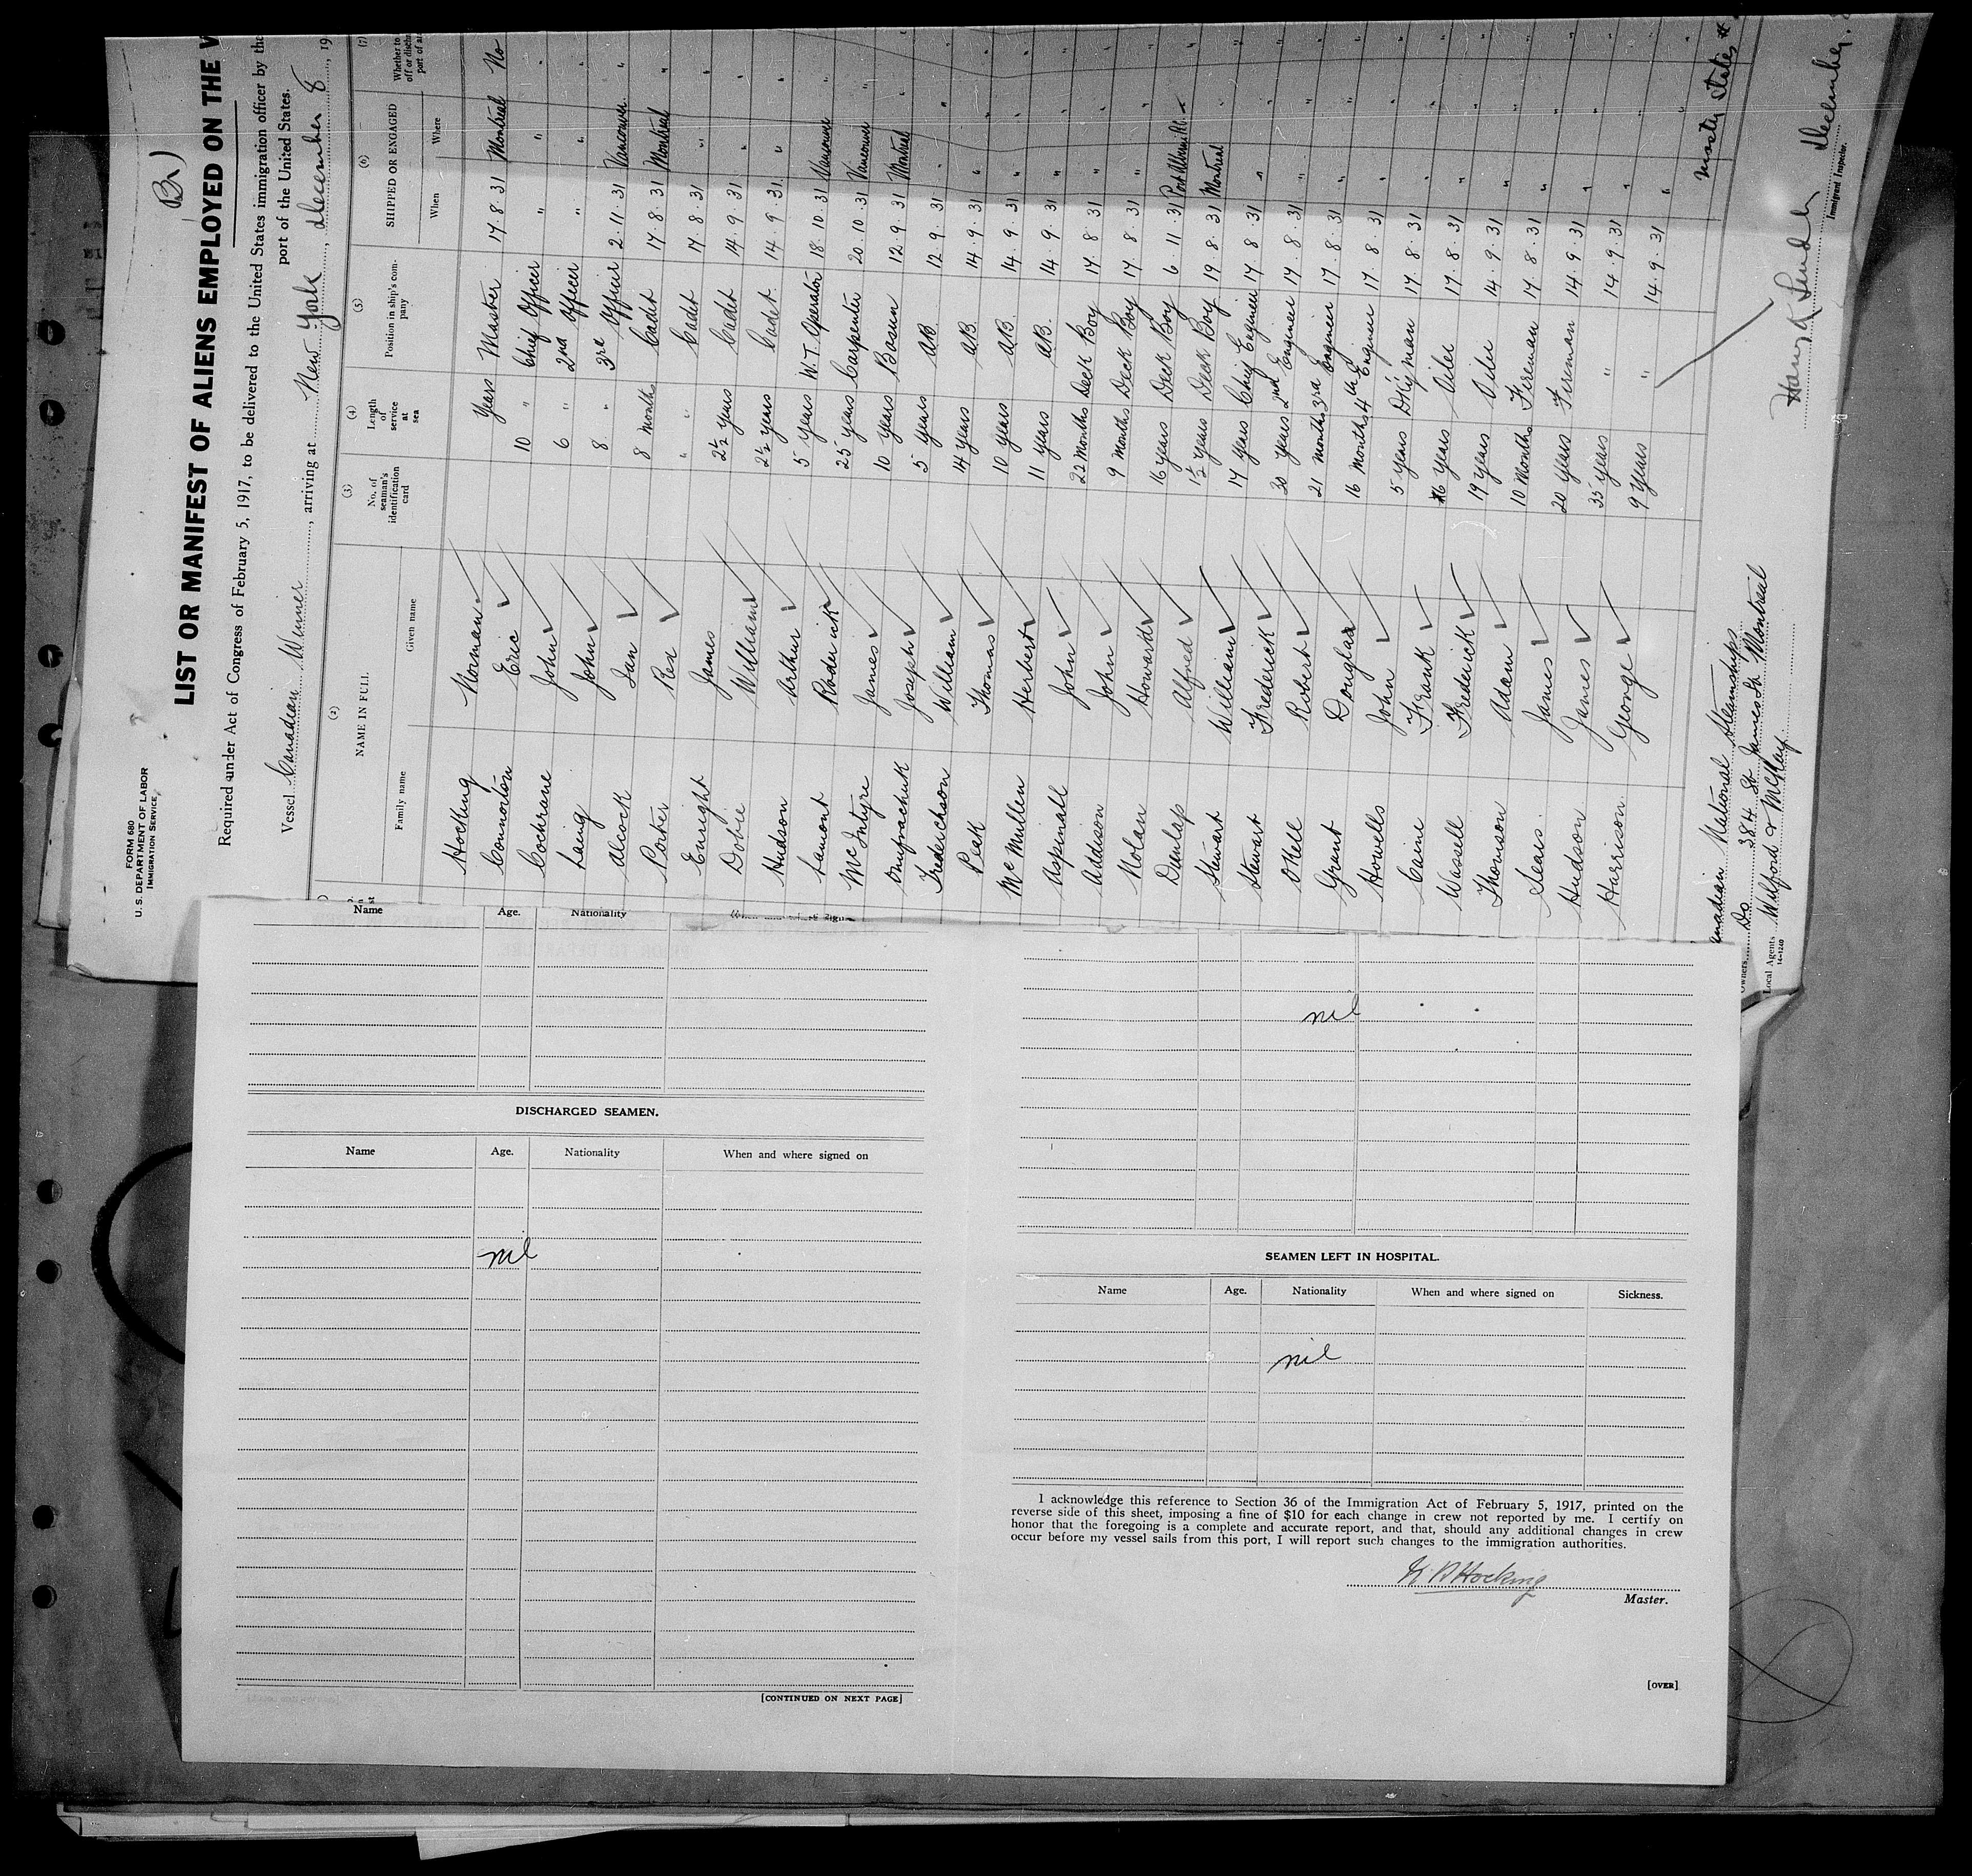 FORM 680
U. S. DEPARTMENT OF LABOR
IMMIGRATION SERVICE
(Br)
LIST OR MANIFEST OF ALIENS EMPLOYED ON THE V
Required under Act of Congress of February 5, 1917, to be delivered to the United States immigration officer by the
port of the United States.
Vessel Canadian Winner, arriving at New York, December 8, 19
(2) (3) (4) (5) (6) (7)
NAME IN FULL
Family name Given name
No. of seaman's identification card
Length of service at sea
Position in ship's company
SHIPPED OR ENGAGED
When Where
Whether to
Hocking Norman Years Master 17.8.31 Montreal No
Connorton Eric 10 " Chief Officer " " "
Cochrane John 6 " 2nd Officer " " "
Laing John 8 " 3rd Officer 2.11.31 Vancouver "
Alcock Ian 8 months Cadet 17.8.31 Montreal "
Porter Rex " Cadet 17.8.31 " "
Enright James 2½ years Cadet 14.9.31 " "
Dobie William 2½ years Cadet 14.9.31 " "
Hudson Arthur 5 years W.T. Operator 18.10.31 Vancouver "
Lamont Roderick 25 years Carpenter 20.10.31 Vancouver "
McIntyre James 10 years Bosun 12.9.31 Montreal "
Onufrachuk Joseph 5 years AB 12.9.31 " "
Frederichson William 14 years AB 14.9.31 " "
Peak Thomas 10 years AB. 14.9.31 " "
McMullen Herbert 11 years AB. 14.9.31 " "
Aspinall John 22 months Deck Boy 17.8.31 " "
Addison John 9 months Deck Boy 17.8.31 " "
Nolan Howard 16 years Deck Boy 6.11.31 Port Alberni B.C. "
Dunlap Alfred 1½ years Deck Boy 19.8.31 Montreal "
Stewart William 17 years Chief Engineer 17.8.31 " "
Stewart Frederick 30 years 2nd Engineer 17.8.31 " "
Okell Robert 21 months 3rd Engineer 17.8.31 " "
Grant Douglas 16 months 4th Engineer 17.8.31 " "
Howells John 5 years D'k'yman 17.8.31 " "
Caine Frank 16 years Oiler 17.8.31 " "
Wassell Frederick 19 years Oiler 14.9.31 " "
Thomson Adam 10 Months Fireman 17.8.31 " "
Sears James 20 years Fireman 14.9.31 " "
Hudson James 35 years " 14.9.31 " "
Harrison George 9 years " 14.9.31 " "
Owners Canadian National Steamships
Do 384 St James St Montreal
Local Agents Wilford & McKay
14-1240
December
Immigrant Inspector.
Name Age. Nationality
DISCHARGED SEAMEN.
Name Age. Nationality When and where signed on
nil
[CONTINUED ON NEXT PAGE]
nil
SEAMEN LEFT IN HOSPITAL.
Name Age. Nationality When and where signed on Sickness.
nil
I acknowledge this reference to Section 36 of the Immigration Act of February 5, 1917, printed on the
reverse side of this sheet, imposing a fine of $10 for each change in crew not reported by me. I certify on
honor that the foregoing is a complete and accurate report, and that, should any additional changes in crew
occur before my vessel sails from this port, I will report such changes to the immigration authorities.
Hocking
Master.
[OVER]